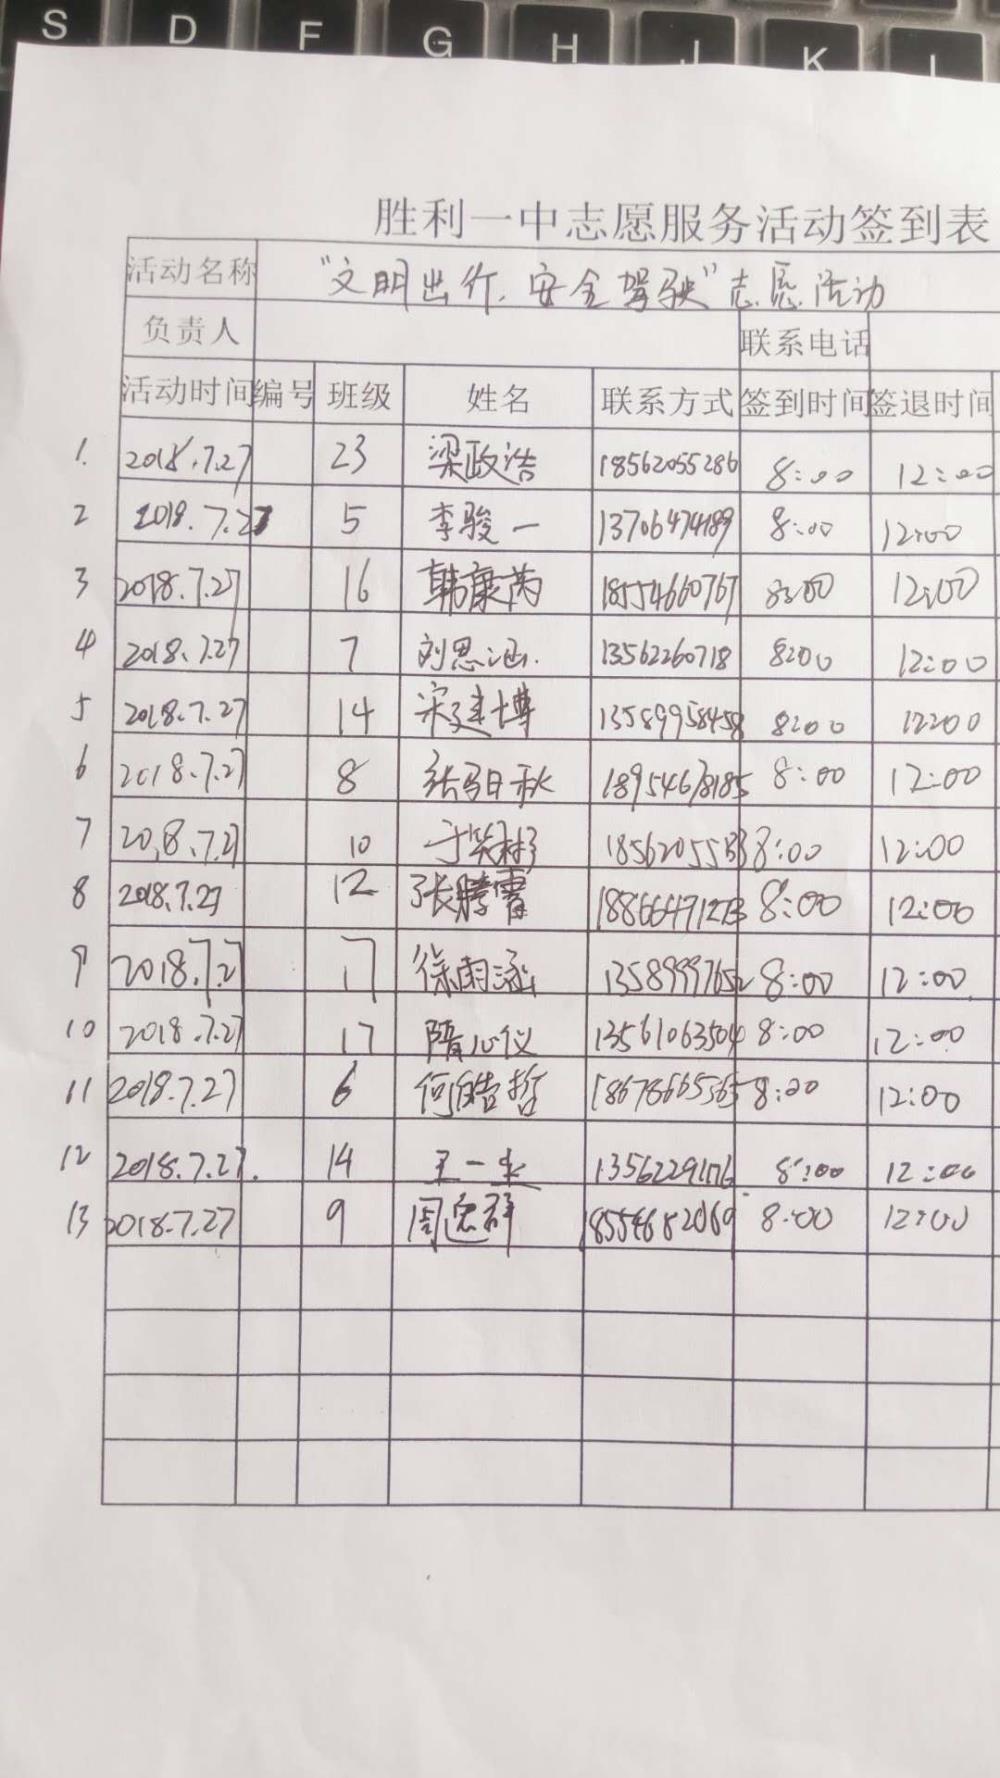 S D F G H J K L
胜利一中志愿服务活动签到表
活动名称 "文明出行、安全驾驶"志愿活动
负责人 联系电话
活动时间 编号 班级 姓名 联系方式 签到时间 签退时间
1. 2018.7.27 23 梁政浩 18562055286 8:00 12:00
2 2018.7.27 5 李骏一 13706474189 8:00 12:00
3 2018.7.27 16 韩康芮 18554660767 8:00 12:00
4 2018.7.27 7 刘思涵. 13562260718 8:00 12:00
5 2018.7.27 14 宋建博 13589958458 8:00 12:00
6 2018.7.27 8 张 秋 8:00 12:00
7 2018.7.27 10 于笑彬 8:00 12:00
8 2018.7.27 12 张腾霄 18866491273 8:00 12:00
9 2018.7.27 17 徐雨涵 13589997652 8:00 12:00
10 2018.7.27 17 隋心仪 13561063504 8:00 12:00
11 2018.7.27 6 何皓哲 18678665565 8:00 12:00
12 2018.7.27. 14 王一 8:00 12:00
13 2018.7.27 9 周逸群 18554682069 8:00 12:00